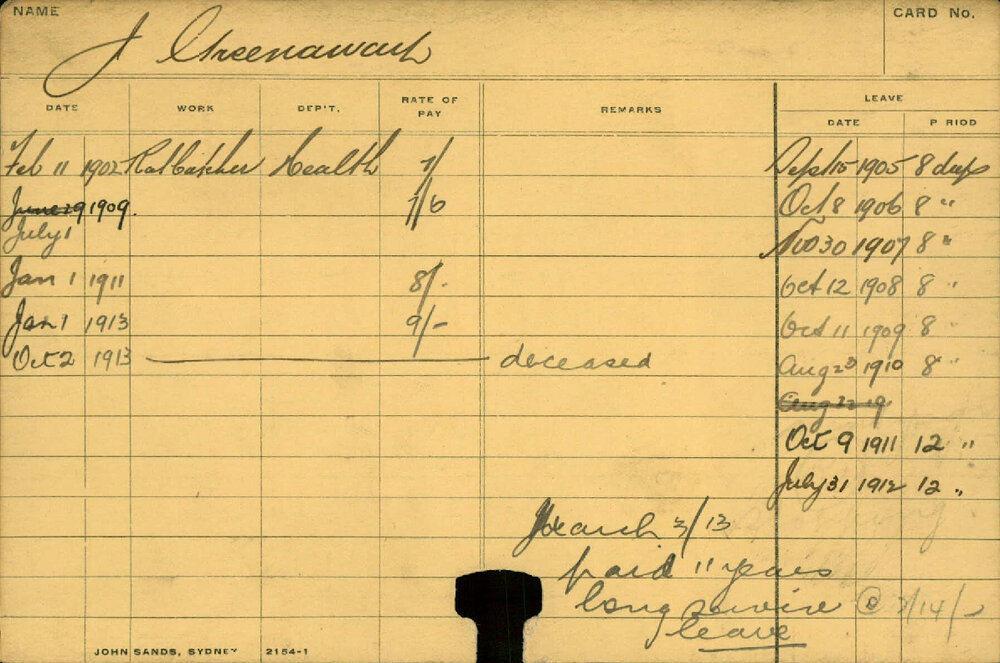 NAME
CARD No.
J Greenaway
DATE WORK DEP'T. RATE OF PAY REMARKS LEAVE
DATE P RIOD
Feb 11 1902 Ratcatcher Health 7/ Sept 15 1905 8 days
June 29 1909. 7/6 Oct 8 1906 8 "
July 1 Nov 30 1907 8 "
Jan 1 1911 8/- Oct 12 1908 8 "
Jan 1 1913 9/- Oct 11 1909 8 "
Oct 2 1913 deceased Aug 23 1910 8 "
Aug 22 19
Oct 9 1911 12 "
July 31 1912 12 "
March 3/13
paid 11 years
long service @ /14/-
leave
JOHN SANDS, SYDNEY 2154-1